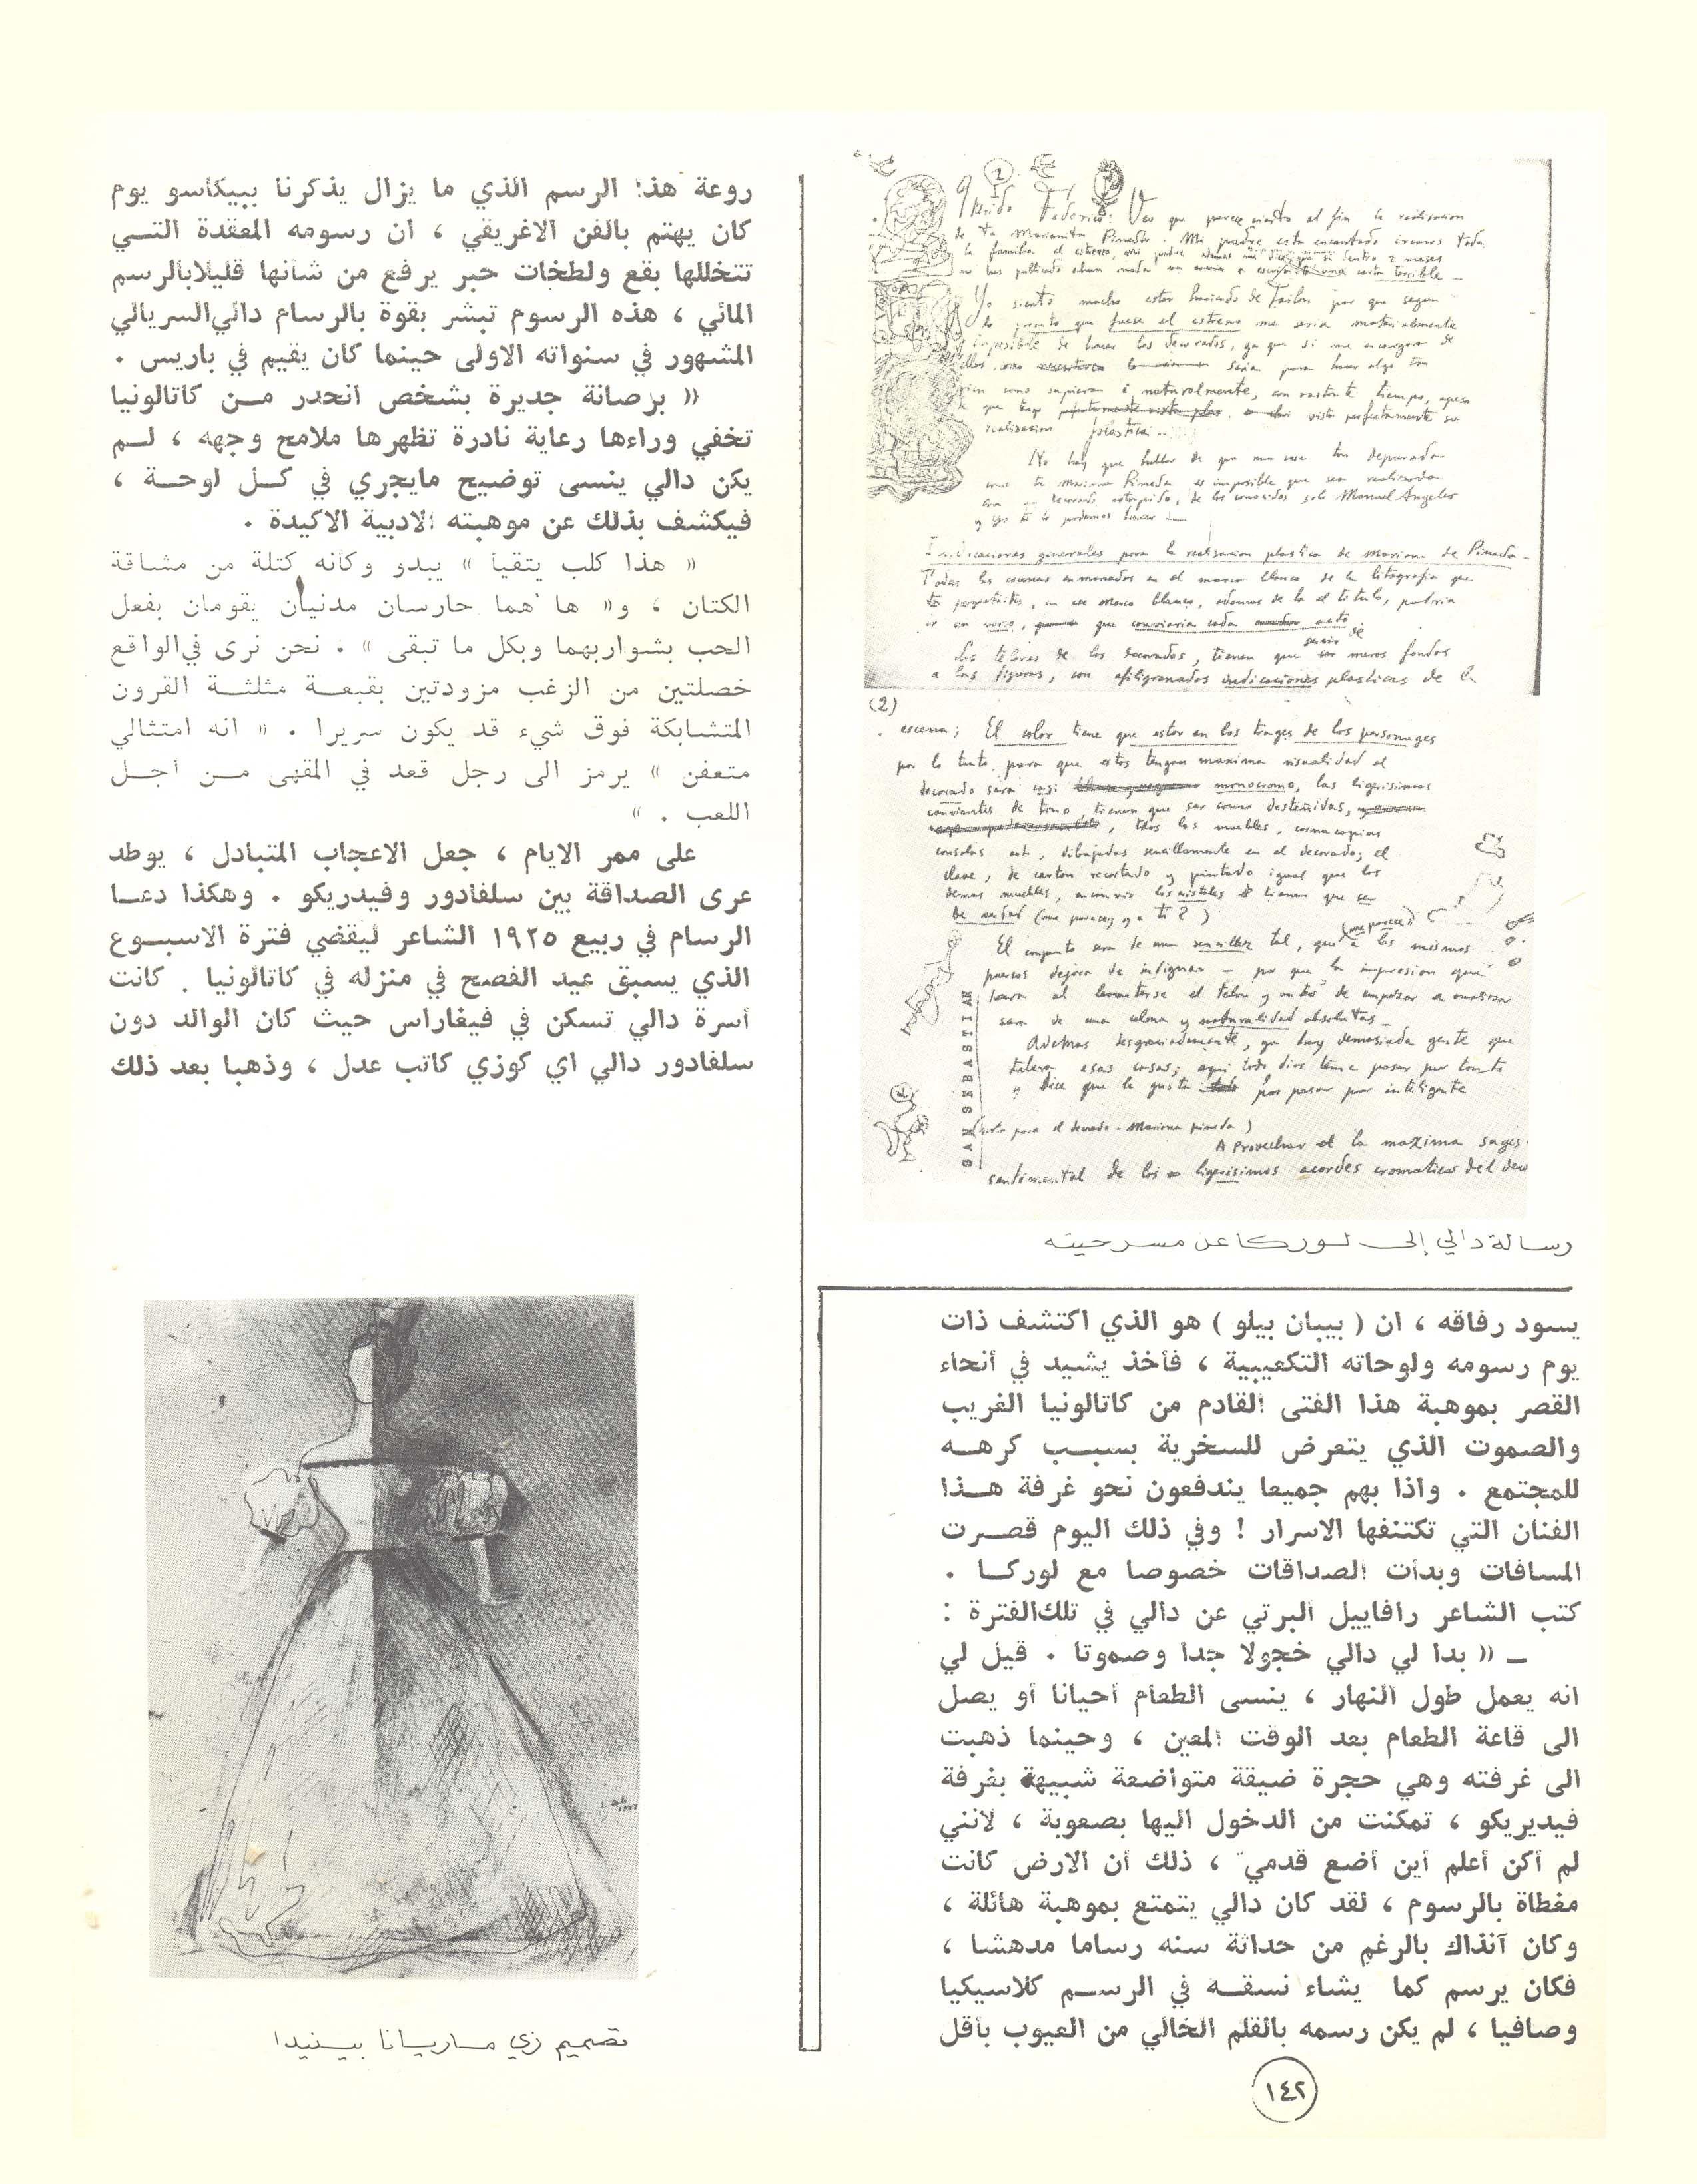 Querido Federico: Veo que parece cierto al fin la realisacion
de tu Marianita Pineda. Mi padre esta encantado iremos toda
la familia al estreno, mi padre ademas me dice que si dentro 2 meses
no has publicado algun
Yo siento mucho estar haciendo de Failon por que segun
lo pronto que fuese el estreno me seria materialmente
imposible de hacer los decorados, ya que si me encargara de
ellos, seria para hacer algo tan
como supiera i naturalmente, con vastante tiempo, apeso
que tengo visto perfectamente su
realisacion plastica
No hay que hablar de que una cosa tan depurada
como tu Mariana Pineda es imposible que sea realizada
con un decorado estupido, de los conocidos solo Manuel Angeles
y yo te lo podemos hacer
Indicaciones generales para la realisacion plastica de Mariana de Pineda
Todas las escenas enmarcadas en el marco blanco de la litografia que
tu proyectastes, en ese marco blanco, ademas de la el titulo, podria
ir un verso, que canviaria cada acto
Los telones de los decorados, tienen que servir de meros fondos
a las figuras, con afiligranados indicaciones plasticas de la
(2)
escena; El color tiene que estar en los trages de los personages
por lo tanto, para que estos tengan maxima visualidad el
decorado sera casi monocromo, las ligerisimas
canviantes de tono, tienen que ser como desteñidas,
todos los muebles, cornucopias
consolas ect, dibujadas sencillamente en el decorado; el
clave, de carton recortado y pintado igual que los
demas muebles, los cristales tienen que ser
de verdad (me parece, y a ti?)
El conjunto sera de una sencillez tal, que (me parece) a los mismos
puercos dejara de indignar - por que la impresion que
al levantarse el telon y antes de empezar a analizar
sera de una calma y naturalidad absolutas
Ademas desgraciadamente, ya hay demasiada gente que
tolera esas cosas; aqui todo dios teme pasar por tonto
y dice que le gusta por pasar por inteligente
SAN SEBASTIAN
para el decorado - Mariana pineda)
Aprovechar el la maxima suges
sentimental de los ligerisimos acordes cromaticos del deco
رسالة دالي إلى لوركا عن مسرحيته
يسود رفاقه ، ان ( بيبان بيلو ) هو الذي اكتشف ذات
يوم رسومه ولوحاته التكعيبية ، فأخذ يشيد في أنحاء
القصر بموهبة هذا الفتى القادم من كاتالونيا الغريب
والصموت الذي يتعرض للسخرية بسبب كرهه
للمجتمع . واذا بهم جميعا يندفعون نحو غرفة هذا
الفنان التي تكتنفها الاسرار ! وفي ذلك اليوم قصرت
المسافات وبدأت الصداقات خصوصا مع لوركا .
كتب الشاعر رافاييل البرتي عن دالي في تلك الفترة :
ــ « بدا لي دالي خجولا جدا وصموتا . قيل لي
انه يعمل طول النهار ، ينسى الطعام أحيانا أو يصل
الى قاعة الطعام بعد الوقت المعين ، وحينما ذهبت
الى غرفته وهي حجرة ضيقة متواضعة شبيهة بغرفة
فيديريكو ، تمكنت من الدخول اليها بصعوبة ، لانني
لم أكن أعلم أين أضع قدمي ، ذلك أن الارض كانت
مغطاة بالرسوم ، لقد كان دالي يتمتع بموهبة هائلة ،
وكان آنذاك بالرغم من حداثة سنه رساما مدهشا ،
فكان يرسم كما يشاء نسقه في الرسم كلاسيكيا
وصافيا ، لم يكن رسمه بالقلم الخالي من العيوب بأقل
روعة هذا الرسم الذي ما يزال يذكرنا ببيكاسو يوم
كان يهتم بالفن الاغريقي ، ان رسومه المعقدة التي
تتخللها بقع ولطخات حبر يرفع من شانها قليلا بالرسم
المائي ، هذه الرسوم تبشر بقوة بالرسام دالي السريالي
المشهور في سنواته الاولى حينما كان يقيم في باريس .
« برصانة جديرة بشخص انحدر من كاتالونيا
تخفي وراءها رعاية نادرة تظهرها ملامح وجهه ، لم
يكن دالي ينسى توضيح مايجري في كل لوحة ،
فيكشف بذلك عن موهبته الادبية الاكيدة .
« هذا كلب يتقيأ » يبدو وكأنه كتلة من مشاقة
الكتان ، و« ها هما حارسان مدنيان يقومان بفعل
الحب بشواربهما وبكل ما تبقى » . نحن نرى في الواقع
خصلتين من الزغب مزودتين بقبعة مثلثة القرون
المتشابكة فوق شيء قد يكون سريرا . « انه امتثالي
متعفن » يرمز الى رجل قعد في المقهى من أجل
اللعب . »
على ممر الايام ، جعل الاعجاب المتبادل ، يوطد
عرى الصداقة بين سلفادور وفيدريكو . وهكذا دعا
الرسام في ربيع ١٩٢٥ الشاعر ليقضي فترة الاسبوع
الذي يسبق عيد الفصح في منزله في كاتالونيا . كانت
أسرة دالي تسكن في فيغاراس حيث كان الوالد دون
سلفادور دالي اي كوزي كاتب عدل ، وذهبا بعد ذلك
تصميم زي ماريانا بينيدا
١٤٢